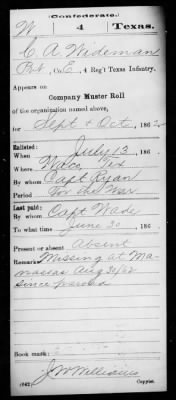 (Confederate.)
W 4 Texas.
C. A. Wideman
Pvt, Co. E, 4 Reg't Texas Infantry.
Appears on
Company Muster Roll
of the organization named above,
for Sept & Oct, 1862
Enlisted:
When July 13, 186
Where Waco, Tex
By whom Capt Ryan
Period For the War
Last paid:
By whom Capt Wade
To what time June 30, 186
Present or absent Absent
Remarks: Missing at Ma-
nassas Aug 30/62
since paroled
Book mark:
J W Williams
(642) Copyist.